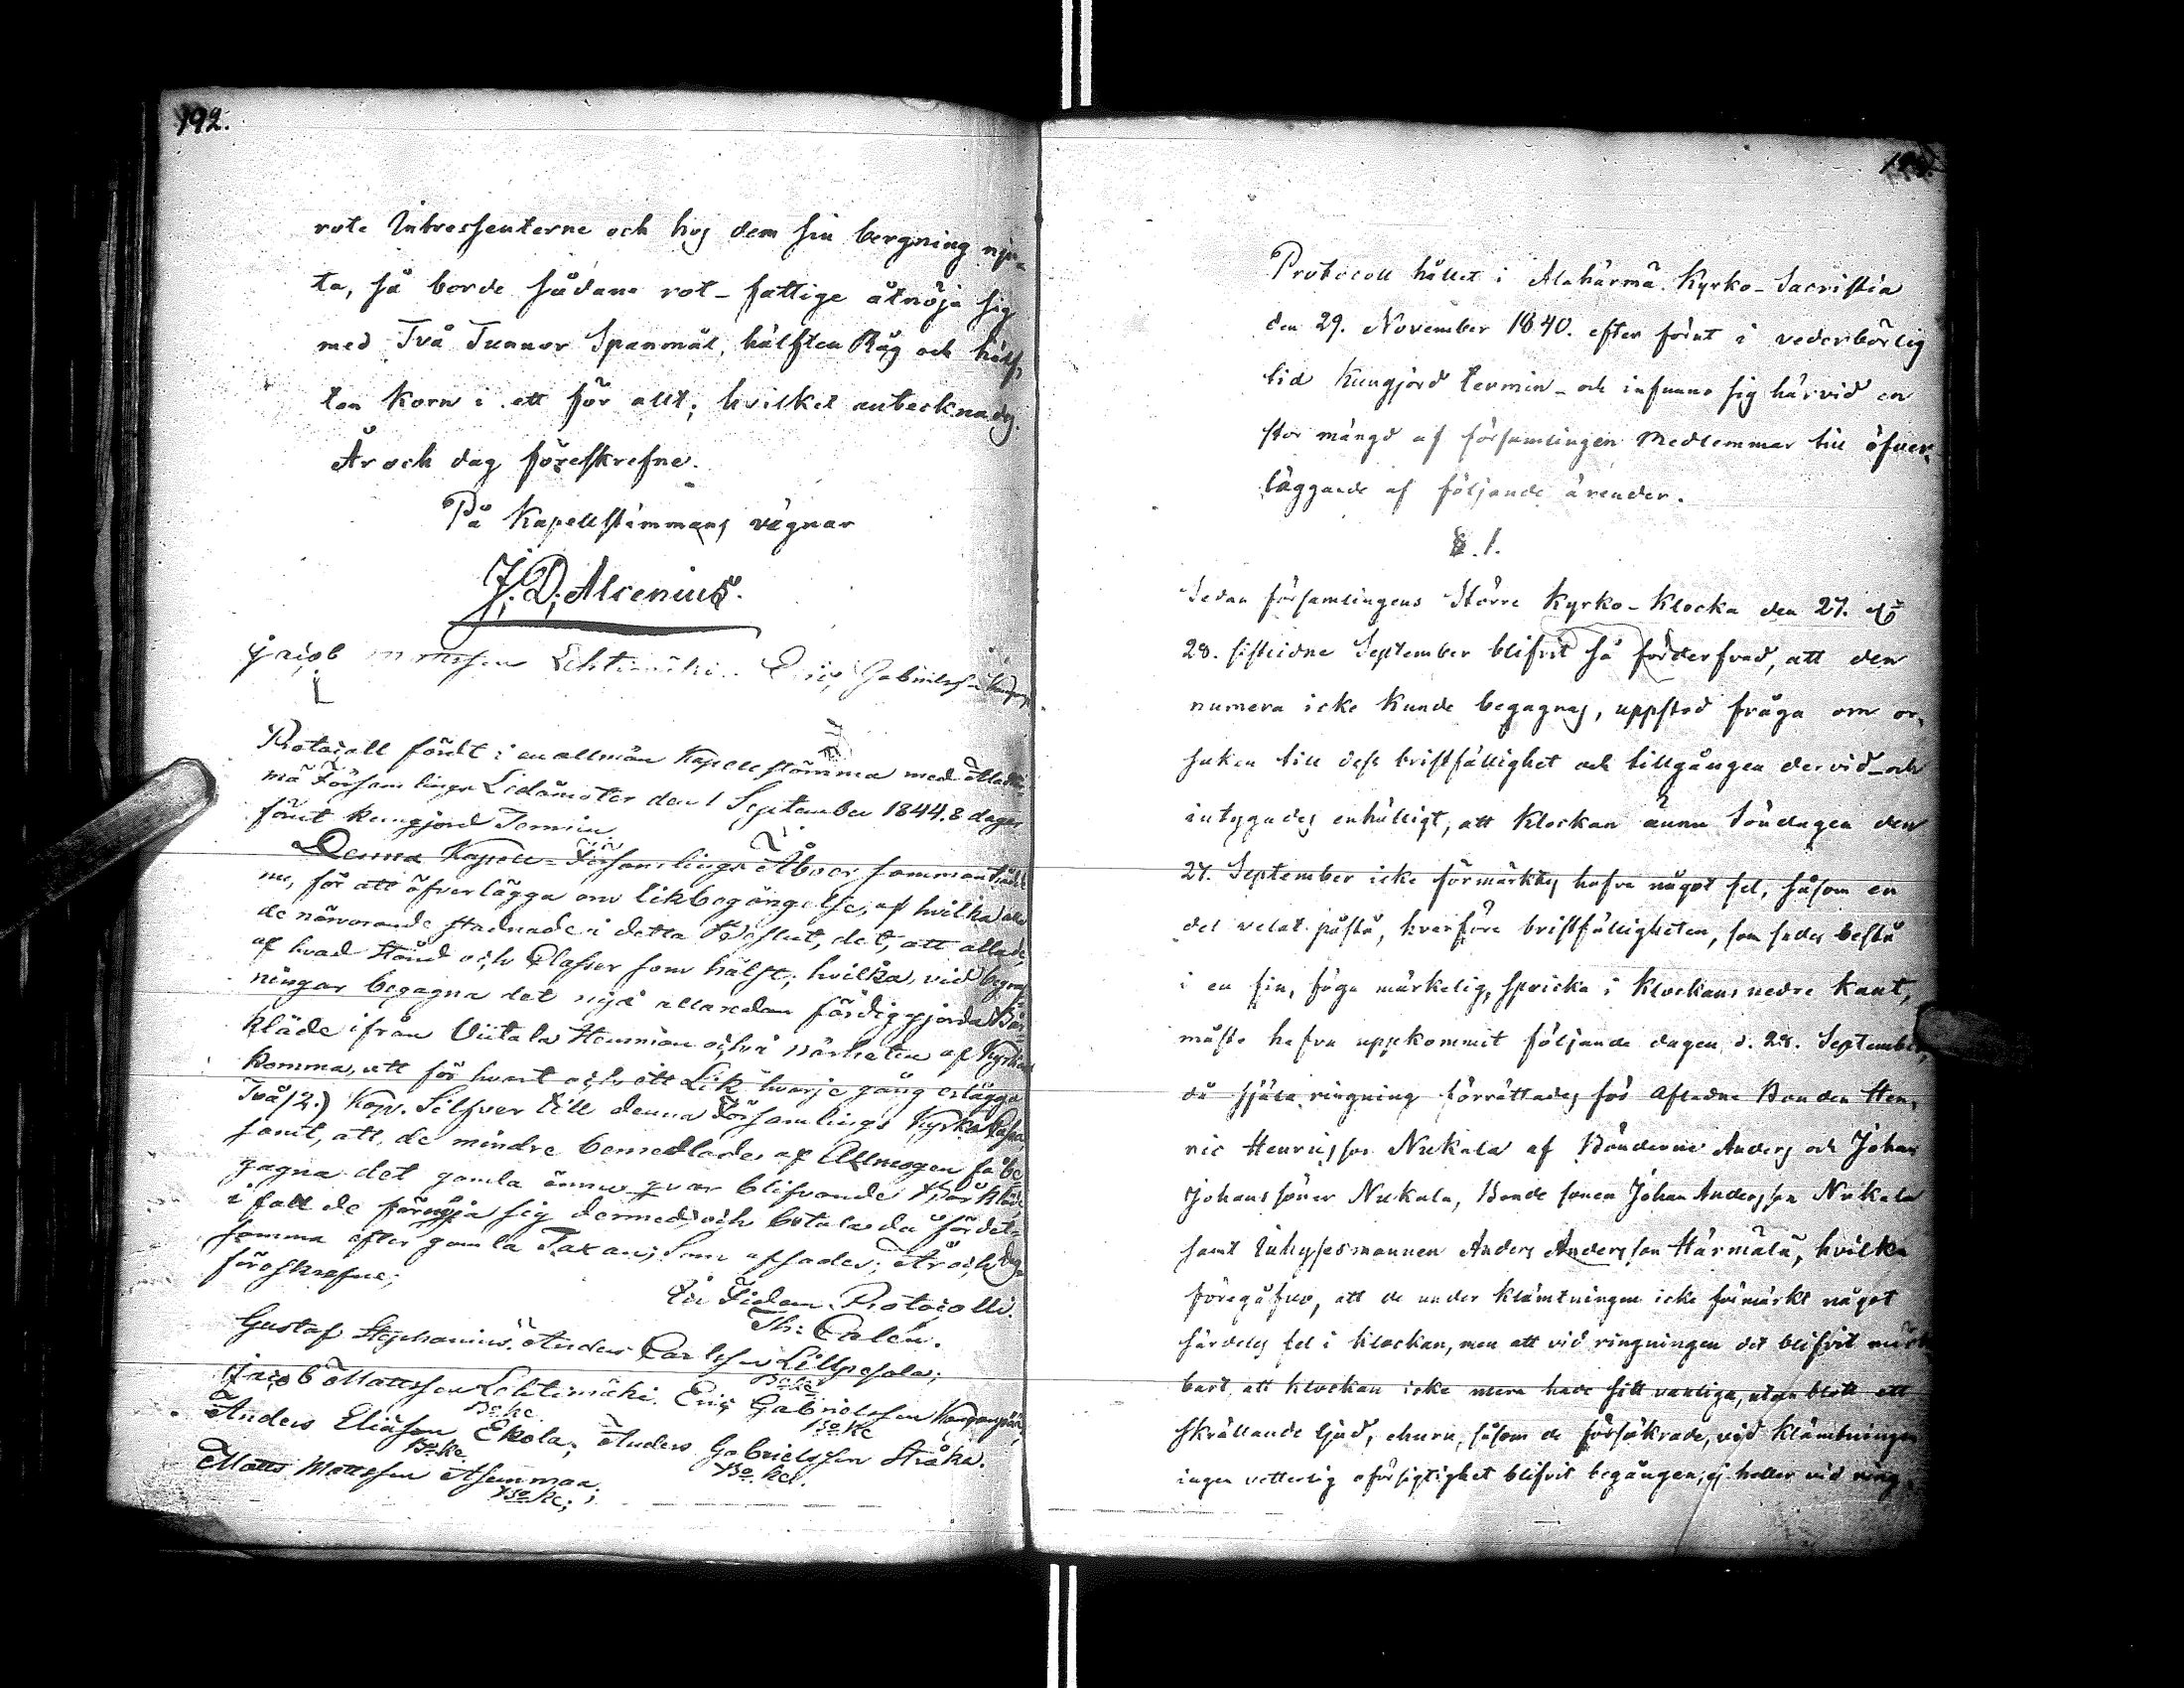 192.
rote Intressenterne och hos dem sin bergning nju-
ta, så borde sådane rot-fattige åtnöja sig
med Två Tunnor Spanmål, hälften Råg och hälf-
ten Korn i ett för allt; hvilket antecknades.
År och dag föreskrefne.
På Kapellstämmans vägnar
J. D. Alcenius.
Jacob Mattsson Lehtimäki. Eric Gabrielsson
Protocoll fördt i en allmän Kapellstämma med Alahär-
mä Församlings Ledamöter den 1 September 1844. 8 dagar
förut kungjord Termin.
Denna Kapell-Församlings Åboer sammanträdde
nu, för att öfverlägga om likbegängelse, af hvilka alla
de närvarande stadnade i detta Beslut, det, att alla de,
af hvad Stånd och Classer som hälst, hvilka, vid begraf-
ningar begagna det nya allaredan färdiggjorda Bår-
kläde ifrån Viitala Hemman och i närheten af Kyrkan
komma, att för hvart och ett Lik hvarje gång erlägga
Två (2.) Kop. Silfver till denna Församlings Kyrko Cassa
samt, att, de mindre bemedlade af Allmogen få be-
gagna det gamla ännu qvar blifvande Bårkläde
i fall de förnöja sig dermed, och betala då för det-
samma efter gamla Taxan; Som afsades; År och dag
föreskrefne;
In Fidem Protocolli.
Th: Calén.
Gustaf Stephanius. Anders Carlsson Lillpesola;
Bo ke
Jacob Mattsson Lehtimäki. Eric Gabrielsson Kangaspää;
Bo ke. Bo ke
Anders Eliasson Ekola; Anders Gabrielsson Ståka.
Bo ke Bo ke.
Matts Mattsson Asunmaa.
Bo ke;
Protocoll hållet i Alahärmä Kyrko-Sacristia
den 29. November 1840. efter förut i vederbörlig
tid Kungjord termin - och infunno sig härvid en
stor mängd af församlingen Medlemmar till öfver-
läggande af följande ärender.
§. 1.
Sedan församlingens Större Kyrko-Klocka den 27. eller
28. sistledne September blifvit så förderfvad, att den
numera icke Kunde begagnas, uppstod fråga om or-
saken till dess bristfällighet och tillgången dervid - och
intygades enhälligt, att Klockan ännu Söndagen den
27. September icke förmärktes hafva något fel, såsom en
del velat påstå, hvarföre bristfälligheten, som sades bestå
i en fin, föga märkelig, spricka i Klockans nedre Kant,
måste hafva uppkommit följande dagen d. 28. September,
då själaringning förrättades för Aflidne Bonden Hen-
ric Henricsson Nukala af Bönderne Anders och Johan
Johanssöner Nukala, Bonde sonen Johan Andersson Nukala
samt Inhysesmannen Anders Andersson Härmälä, hvilka
föregåfvo, att de under klämtningen icke förmärkt något
särdeles fel i Klockan, men att vid ringningen det blifvit märk-
bart, att Klockan icke mera hade sitt vanliga, utan blott ett
skrällande ljud, ehuru, såsom de försäkrade, vid klämtningen
ingen vetterlig oförsigtighet blifvit begången; ej heller vid ring-